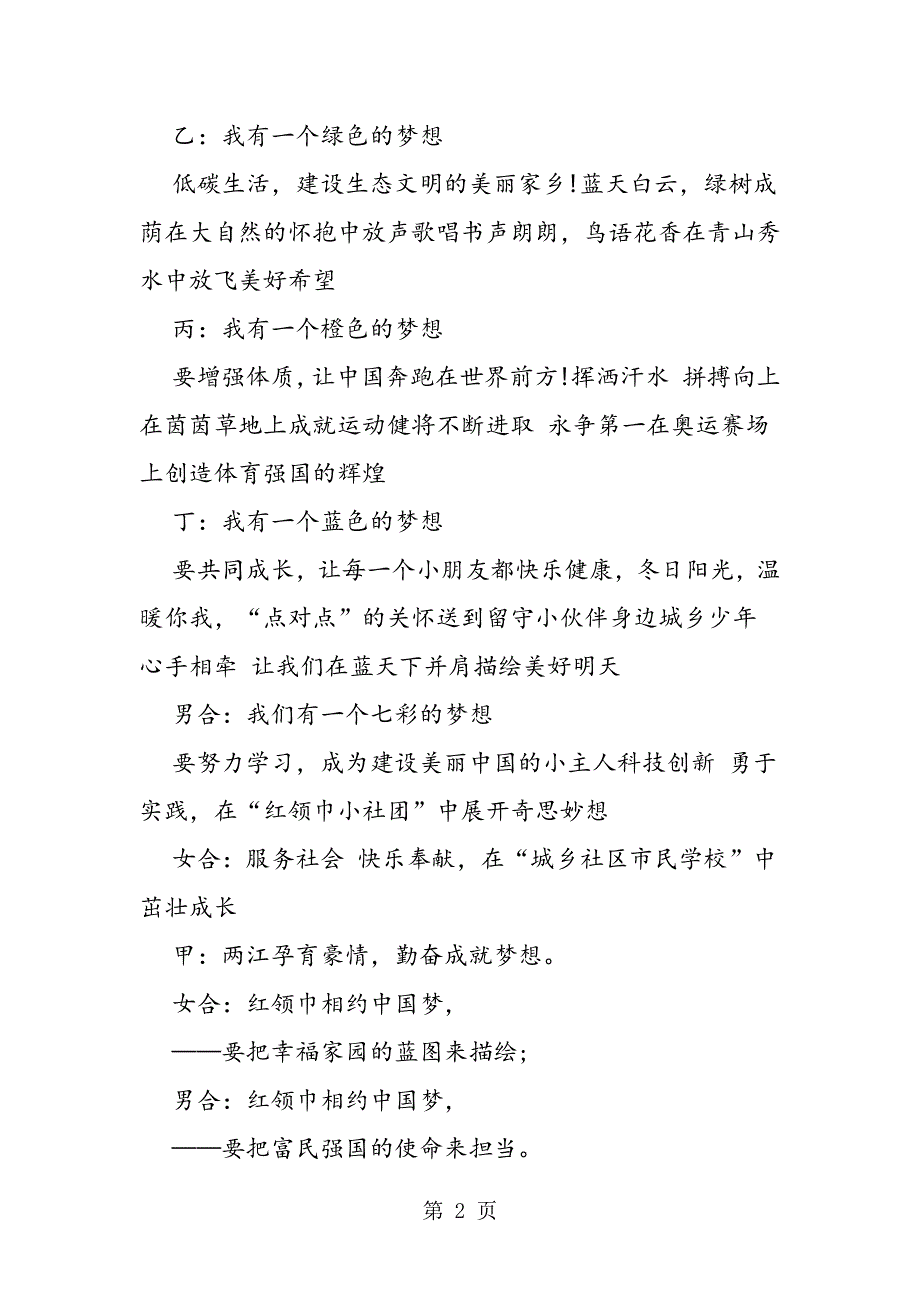 乙：我有一个绿色的梦想
低碳生活，建设生态文明的美丽家乡!蓝天白云，绿树成
荫在大自然的怀抱中放声歌唱书声朗朗，鸟语花香在青山秀
水中放飞美好希望
丙：我有一个橙色的梦想
要增强体质,让中国奔跑在世界前方!挥洒汗水 拼搏向上
在茵茵草地上成就运动健将不断进取 永争第一在奥运赛场
上创造体育强国的辉煌
丁：我有一个蓝色的梦想
要共同成长，让每一个小朋友都快乐健康，冬日阳光，温
暖你我，“点对点”的关怀送到留守小伙伴身边城乡少年
心手相牵 让我们在蓝天下并肩描绘美好明天
男合：我们有一个七彩的梦想
要努力学习，成为建设美丽中国的小主人科技创新 勇于
实践，在“红领巾小社团”中展开奇思妙想
女合：服务社会 快乐奉献，在“城乡社区市民学校”中
茁壮成长
甲：两江孕育豪情，勤奋成就梦想。
女合：红领巾相约中国梦，
——要把幸福家园的蓝图来描绘;
男合：红领巾相约中国梦，
——要把富民强国的使命来担当。
第 2 页